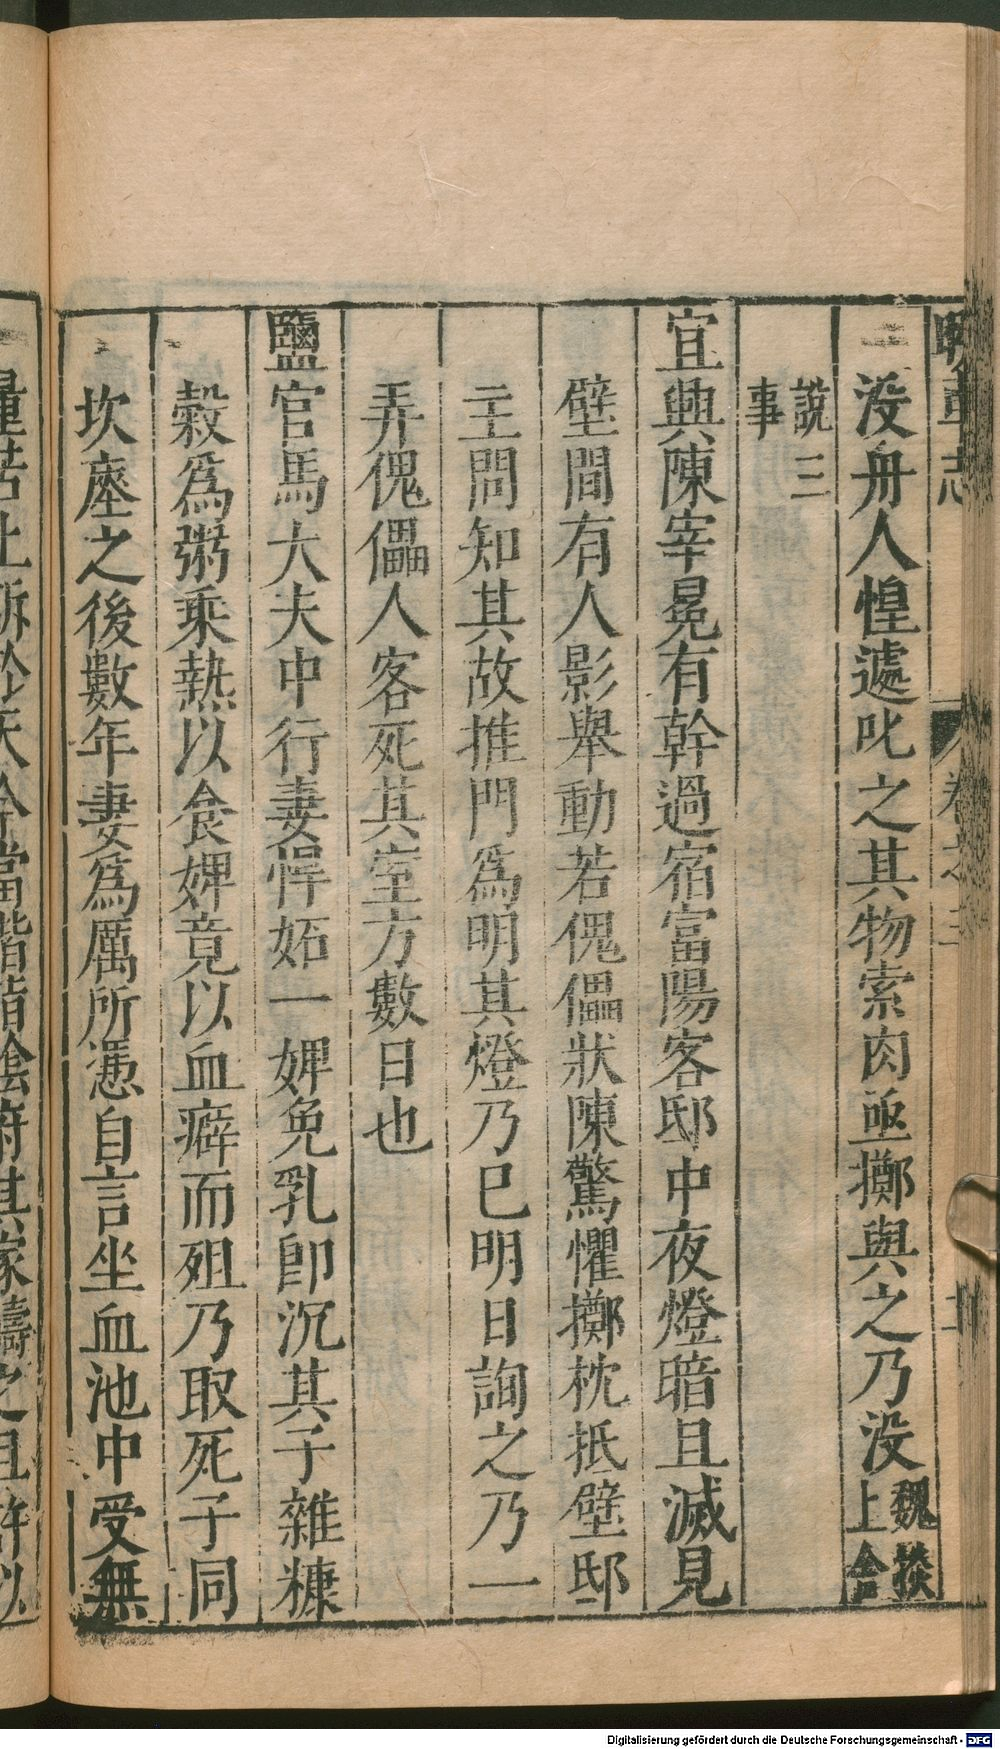 睽車志 卷之三 二
没舟人惶遽叱之其物索肉亟擲與之乃没魏掞上舍
說三事
宜興陳宰晃有幹過宿富陽客邸中夜燈暗且滅見
壁間有人影舉動若傀儡狀陳驚懼擲枕抵壁邸
主問知其故推門爲明其燈乃已明日詢之乃一
弄傀儡人客死其室方數日也
鹽官馬大夫中行妻悍妬一婢免乳卽沉其子雜糠
穀爲粥乘熱以食婢竟以血癖而殂乃取死子同
坎瘞之後數年妻爲厲所憑自言坐血池中受無
Digitalisierung gefördert durch die Deutsche Forschungsgemeinschaft - DFG